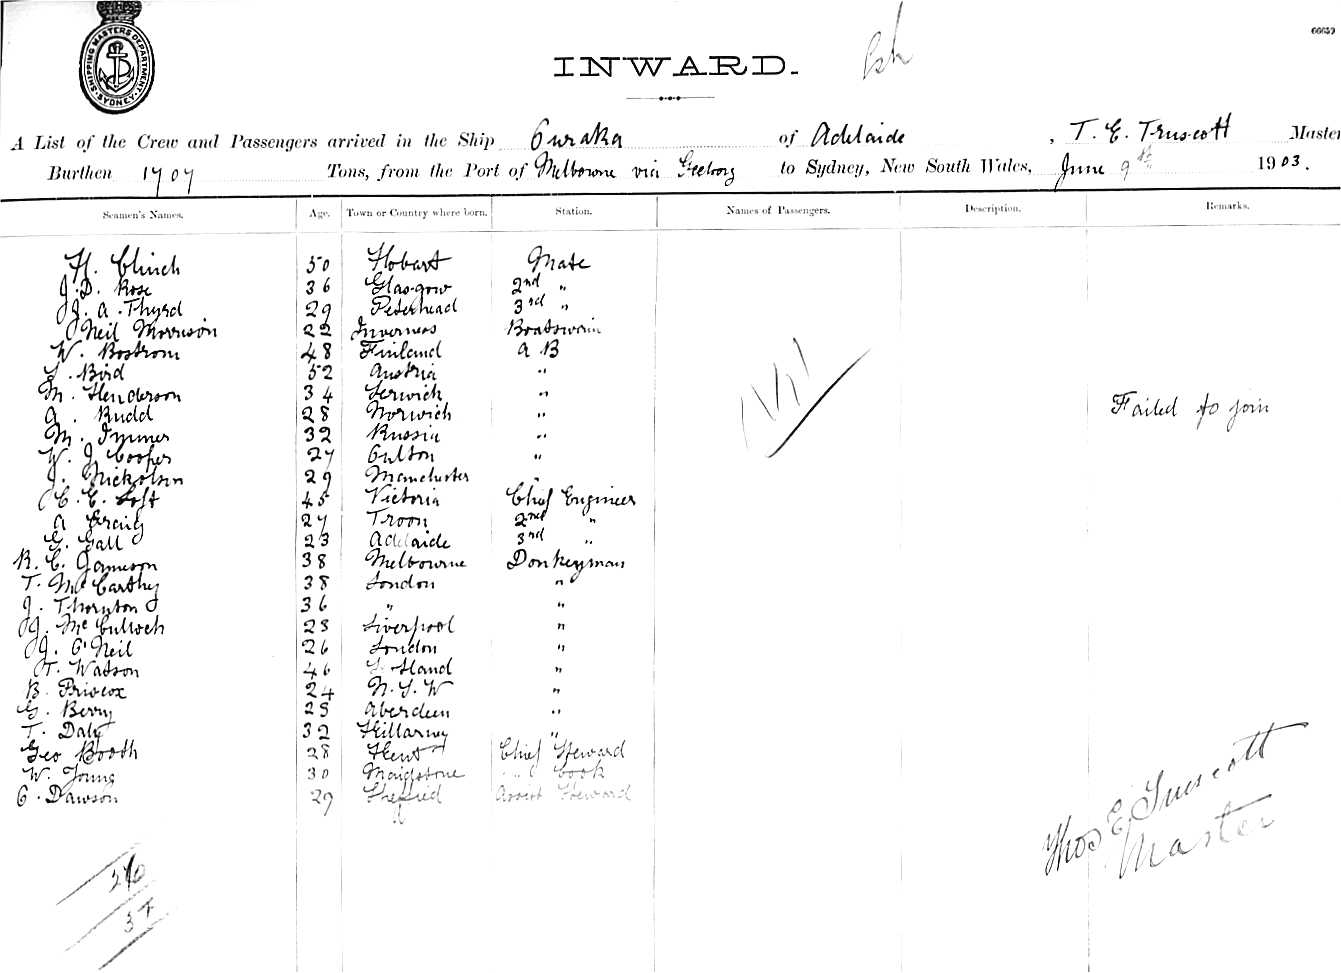 SHIPPING MASTERS DEPARTMENT SYDNEY
66659
INWARD.
A List of the Crew and Passengers arrived in the Ship Ouraka of Adelaide, T. E. Truscott Master
Burthen 1707 Tons, from the Port of Melbourne via Geelong to Sydney, New South Wales, June 9th 1903.
Seamen's Names. Age. Town or Country where born. Station. Names of Passengers. Description. Remarks.
H. Clinch 50 Hobart Mate
J. D. Rose 36 Glasgow 2nd "
J. A. Thyrd 29 Peterhead 3rd "
Neil Morrison 22 Inverness Boatswain
W. Bostrom 48 Finland A B
Bird 52 Austria "
M. Henderson 34 Lerwick "
A. Rudd 28 Norwich " Failed to join
M. Immer 32 Russia "
W. J. Cooper 27 Oulton "
J. Nickolson 29 Manchester "
C. E. Loft 45 Victoria Chief Engineer
A Craig 27 Troon 2nd "
G. Gall 23 Adelaide 3rd "
R. C. Jameson 38 Melbourne Donkeyman
T. McCarthy 38 London "
J. Thornton 36 " "
J. McCulloch 28 Liverpool "
J. O'Neil 26 London "
T. Watson 46 "
B. Priscox 24 N. S. W "
G. Berry 25 Aberdeen "
T. Daly 32 Killarney "
Geo Booth 28 Kent Chief Steward
W. Young 30 Maidstone " Cook
C. Dawson 29 Sheffield Assist Steward
Thos E Truscott
Master
26